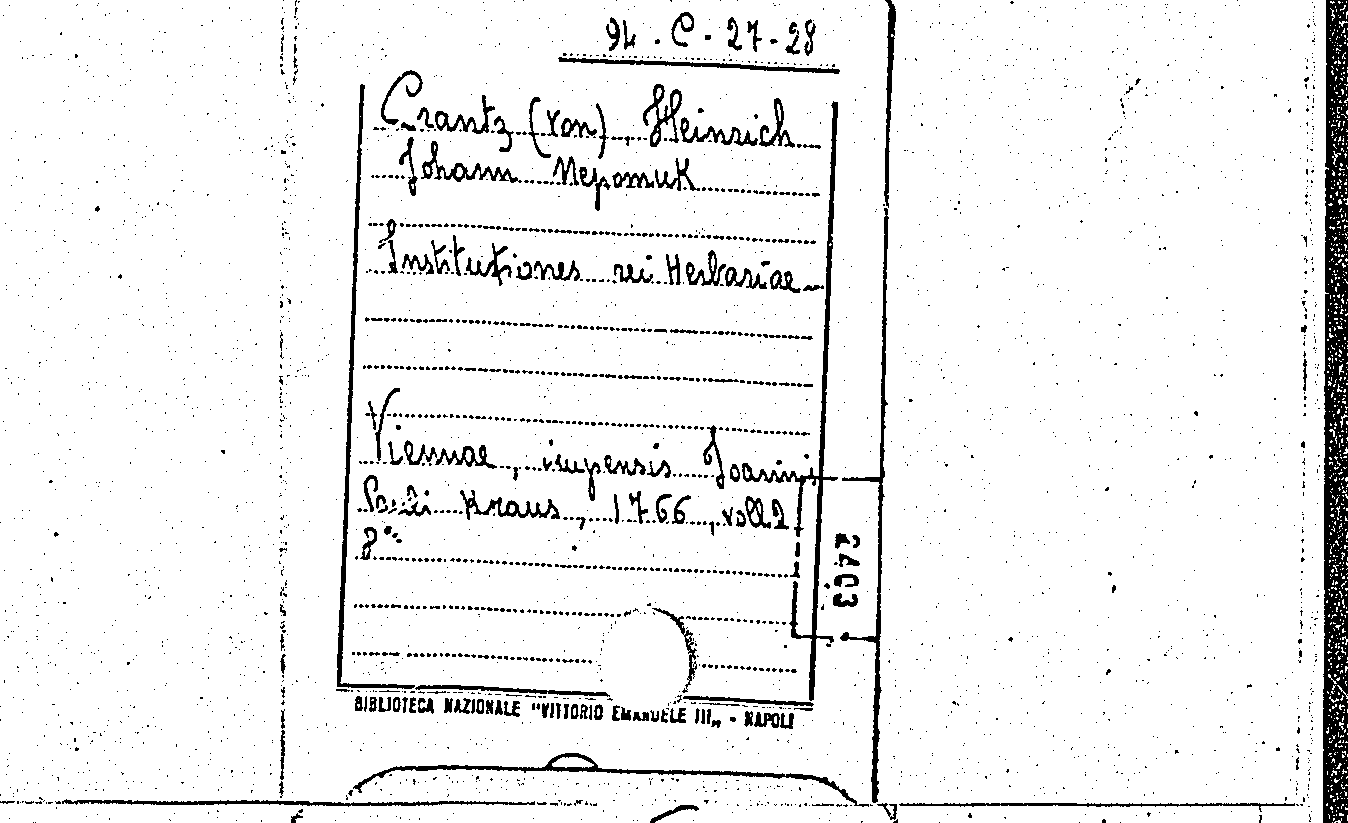 94 . C - 27-28
Crantz (von), Heinrich
Johann Nepomuk
Institutiones rei Herbariae -
Viennae, impensis Joannis
Pauli Kraus, 1766, voll 2
8°
2403
BIBLIOTECA NAZIONALE "VITTORIO EMANUELE III„ - NAPOLI